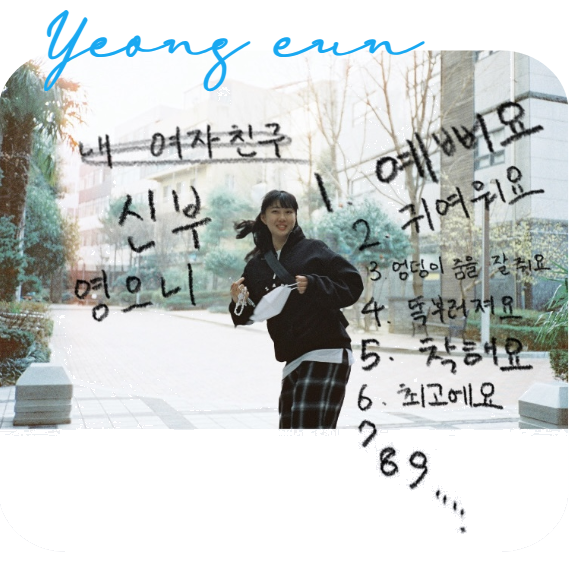 Yeong eun
내 여자친구
신부
영으니
1. 예뻐요
2. 귀여워요
3 엉덩이 춤을 잘 춰요
4. 똑부러져요
5. 착해요
6. 최고에요
7
8 9 .....